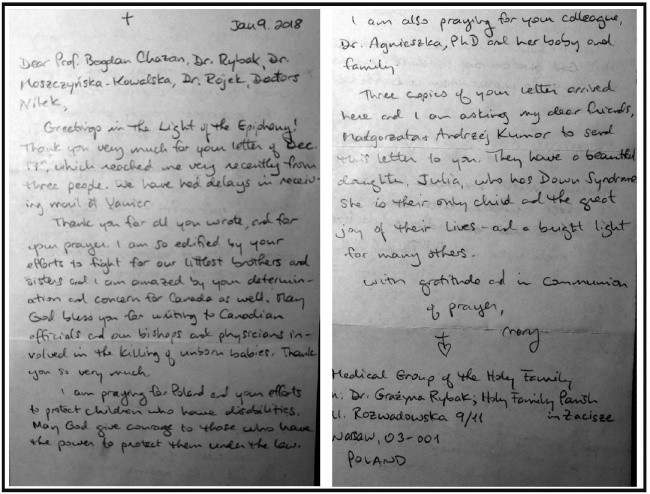 Jan 9. 2018
Dear Prof. Bogdan Chazan, Dr. Rybak, Dr.
Moszczyńska-Kowalska, Dr. Rojek, Doctors
Nitek,
Greetings in the Light of the Epiphany!
Thank you very much for your letter of Dec.
which reached me very recently from
three people. We have had delays in receiv-
ing mail at Vanier.
Thank you for all you wrote, and for
your prayer. I am so edified by your
efforts to fight for our littlest brothers and
sisters and I am amazed by your determin-
ation and concern for Canada as well. May
God bless you for writing to Canadian
officials and our bishops and physicians in-
volved in the killing of unborn babies. Thank
you so very much.
I am praying for Poland and your efforts
to protect children who have disabilities.
May God give courage to those who have
the power to protect them under the law.
I am also praying for your colleague,
Dr. Agnieszka, PhD and her baby and
family.
Three copies of your letter arrived
here and I am asking my dear friends,
Małgorzata + Andrzej Kumor to send
this letter to you. They have a beautiful
daughter, Julia, who has Down Syndrome
She is their only child and the great
joy of their lives - and a bright light
for many others.
with gratitude and in Communion
of prayer,
- mary
Medical Group of the Holy Family
Dr. Grażyna Rybak; Holy Family Parish
Ul. Rozwadowska 9/11 in Zacisze
Warsaw, 03-001
POLAND